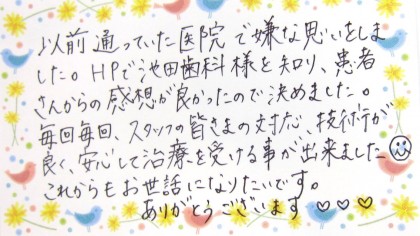 以前通っていた医院で嫌な思いをしま
した。HPで池田歯科様を知り、患者
さんからの感想が良かったので決めました。
毎回毎回、スタッフの皆さまの対応、技術が
良く、安心して治療を受ける事が出来ました
これからもお世話になりたいです。
ありがとうございます♡♡♡